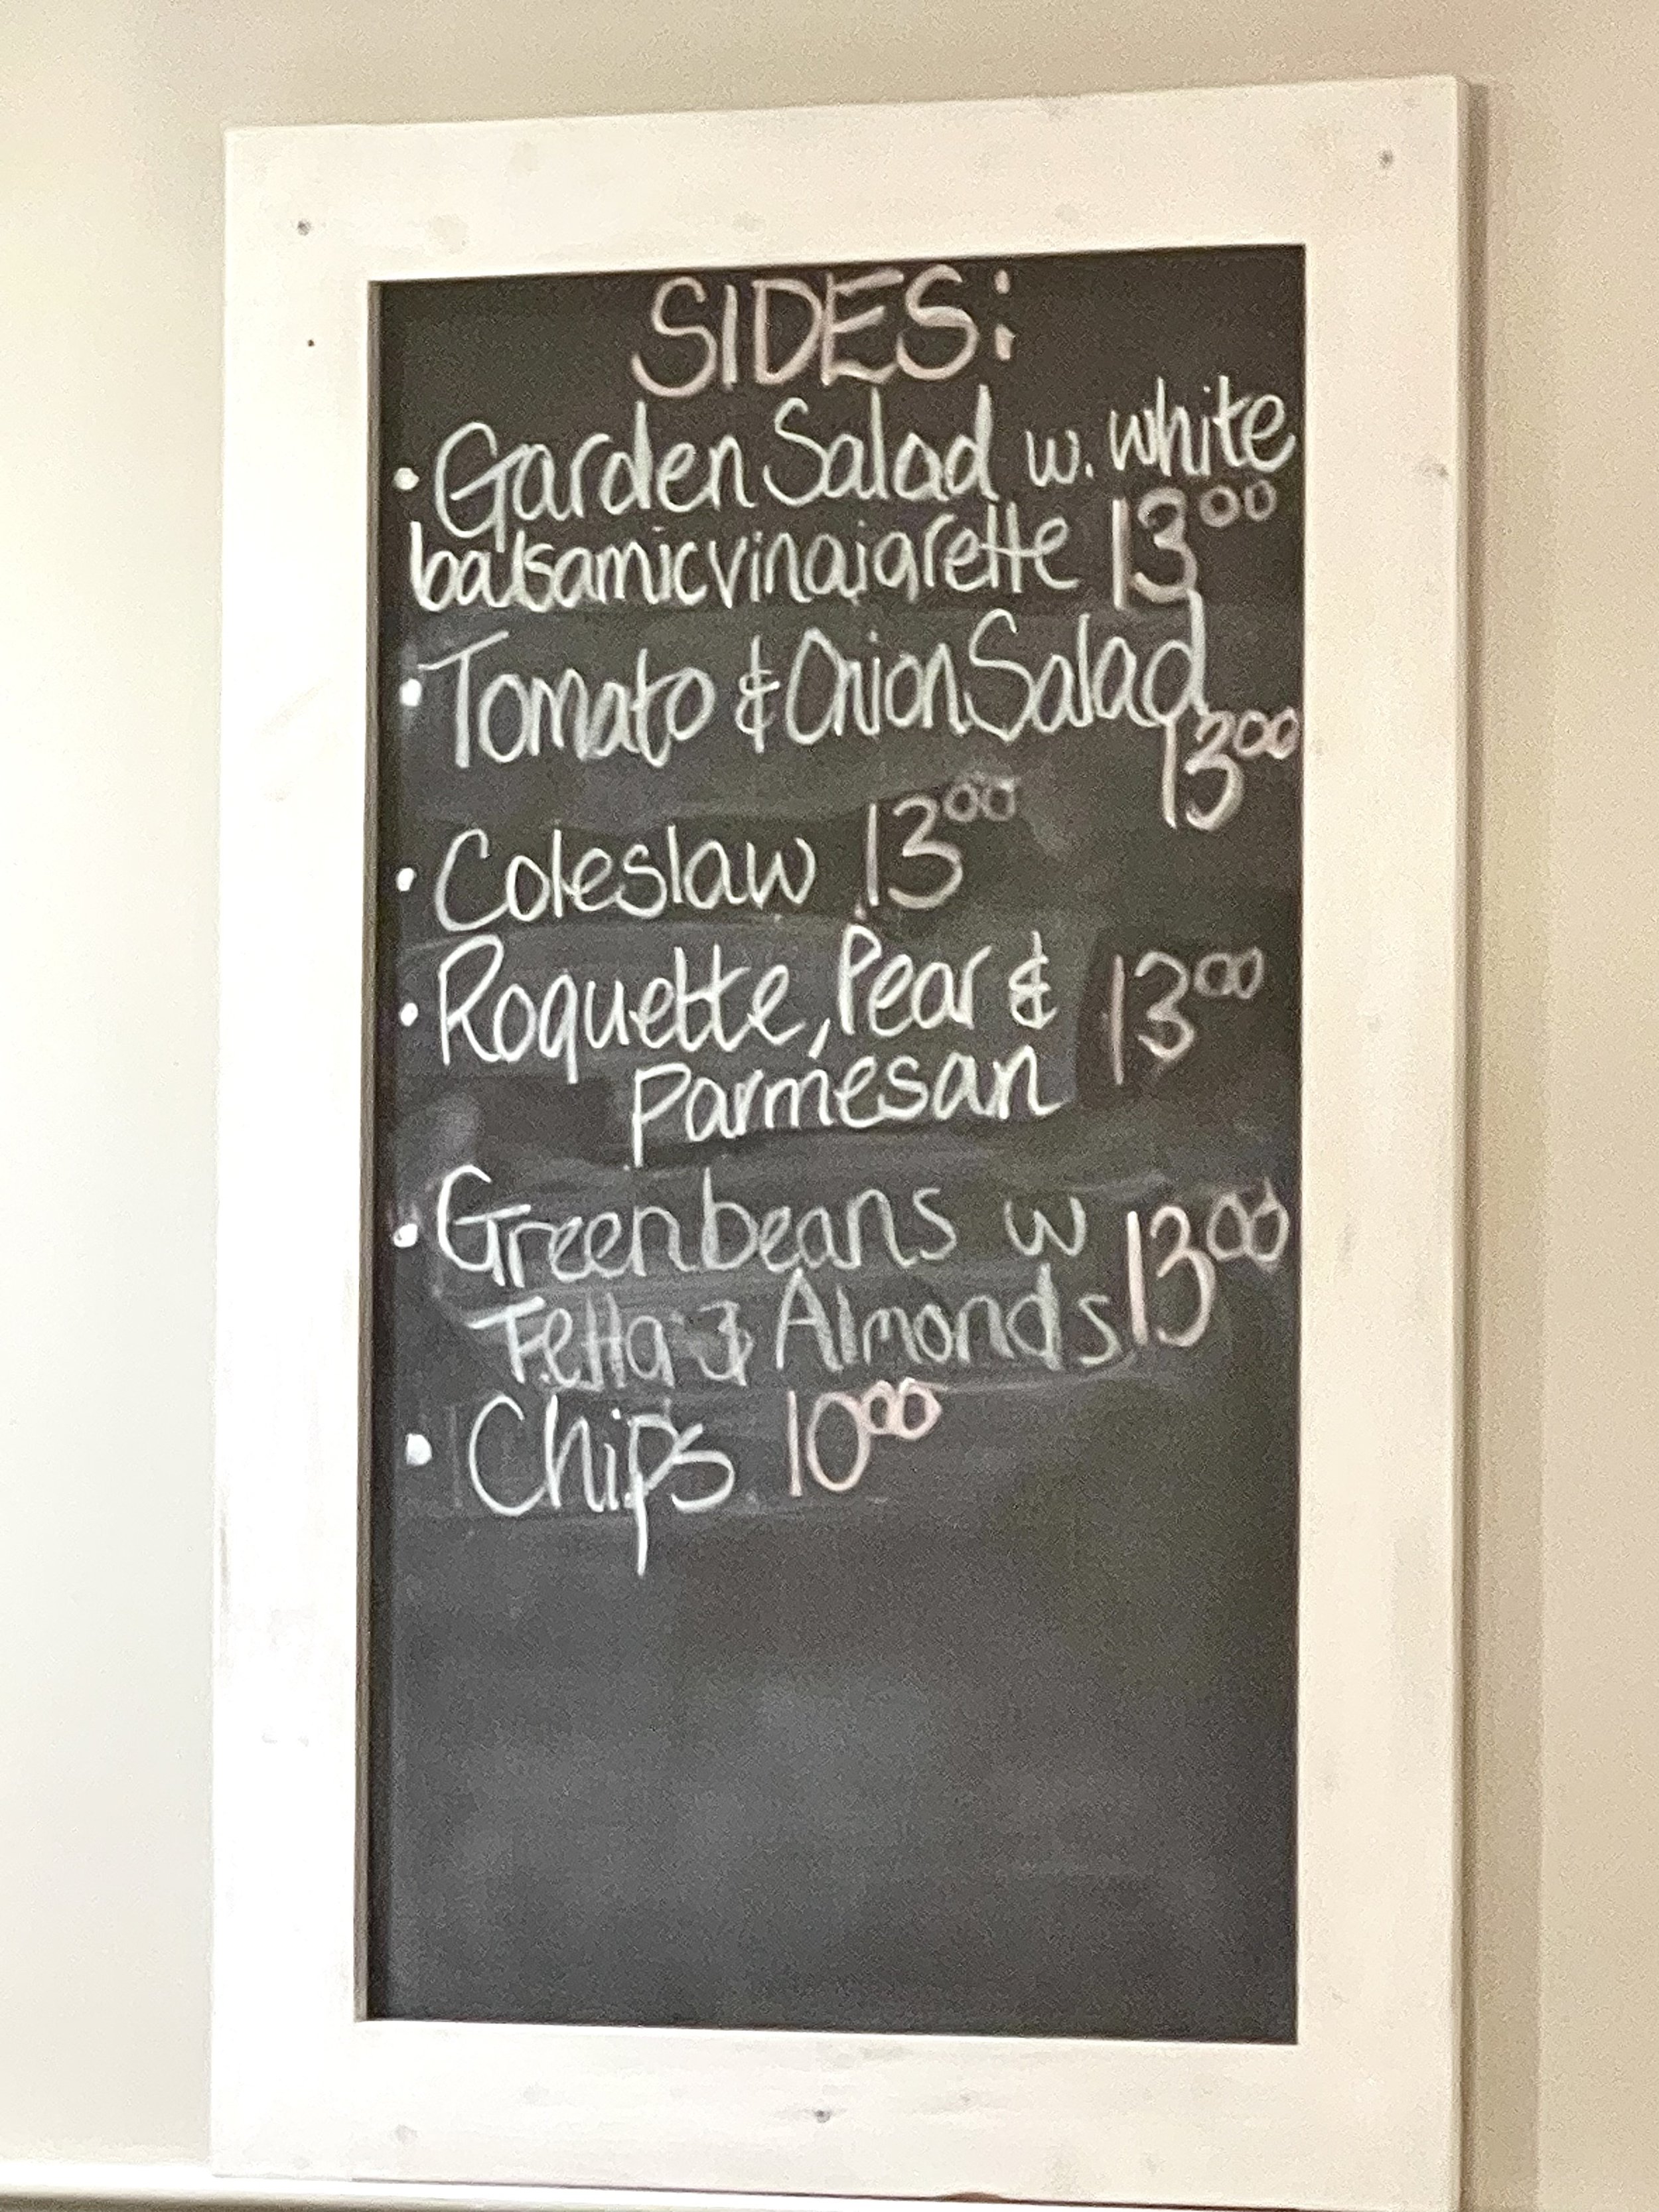 SIDES:
• Garden Salad w. white
balsamic vinaigrette 13⁰⁰
• Tomato & Onion Salad
13⁰⁰
• Coleslaw 13⁰⁰
• Roquette, Pear & 13⁰⁰
Parmesan
• Greenbeans w 13⁰⁰
Fetta & Almonds
• Chips 10⁰⁰